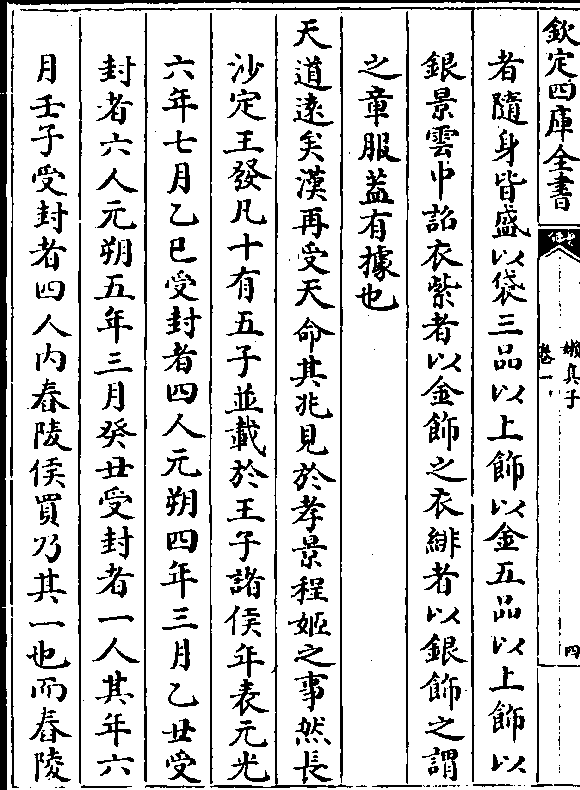 欽定四庫全書
嬾真子
卷一
四
者隨身皆盛以袋三品以上飾以金五品以上飾以
銀景雲中詔衣紫者以金飾之衣緋者以銀飾之謂
之章服蓋有據也
天道遠矣漢再受天命其兆見於孝景程姬之事然長
沙定王發凡十有五子並載於王子諸侯年表元光
六年七月乙巳受封者四人元朔四年三月乙丑受
封者六人元朔五年三月癸丑受封者一人其年六
月壬子受封者四人内舂陵侯買乃其一也而舂陵